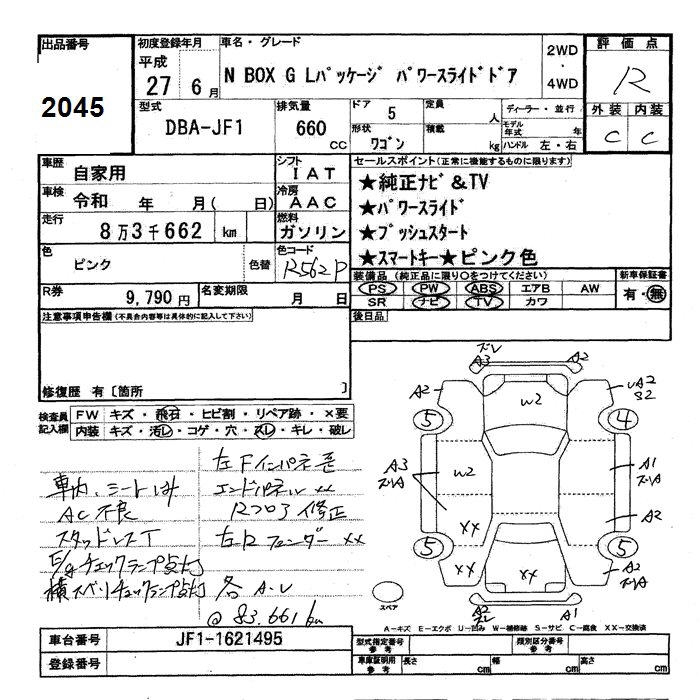 出品番号
2045
初度登録年月
平成
27 6 月
車名・グレード
N BOX G Lパッケージ パワースライドドア
2WD
・
4WD
評価点
R
外装 内装
C C
型式
DBA-JF1
排気量
660 CC
ドア 5
定員 人
形状 ワゴン
積載 kg
ディーラー・並行
モデル年式 年
ハンドル 左・右
車歴 自家用
シフト IAT
車検 令和 年 月( 日)
冷房 AAC
走行 8万3千662 km
燃料 ガソリン
色 ピンク 色替
色コード R562P
R券 9,790円
名変期限 月 日
セールスポイント(正常に機能するものに限ります)
★純正ナビ&TV
★パワースライド
★プッシュスタート
★スマートキー★ピンク色
装備品 (純正品に限り○をつけてください)
PS PW ABS エアB AW
SR ナビ TV カワ
新車保証書
有・無
後日品
注意事項申告欄(不具合内容等は具体的に記入して下さい)
修復歴 有 [箇所 ]
検査員記入欄
FW キズ・飛石・ヒビ割・リペア跡・×要
内装 キズ・汚レ・コゲ・穴・スレ・キレ・破レ
車内、シートしみ
AC不良
スタッドレスT
E/gチェックランプ点灯
横スベリチェックランプ点灯
左Fインパネ歪
エンドパネル XX
修正
左Rフェンダー XX
各 A・U
@ 83.661km
ズレ
A3 A2
A2
A2
S2
W2
5 4
A3
W2
A1
ズレA
A2
XX
5 5
XX
XX
A2
ズレA
A2
ズレ
A1
スペア
A-キズ E-エクボ U-凹み W-補修跡 S-サビ C-腐食 XX-交換済
車台番号 JF1-1621495
登録番号
型式指定番号 参考
類別区分番号 参考
車庫証明用 参考
長さ cm
幅 cm
高さ cm